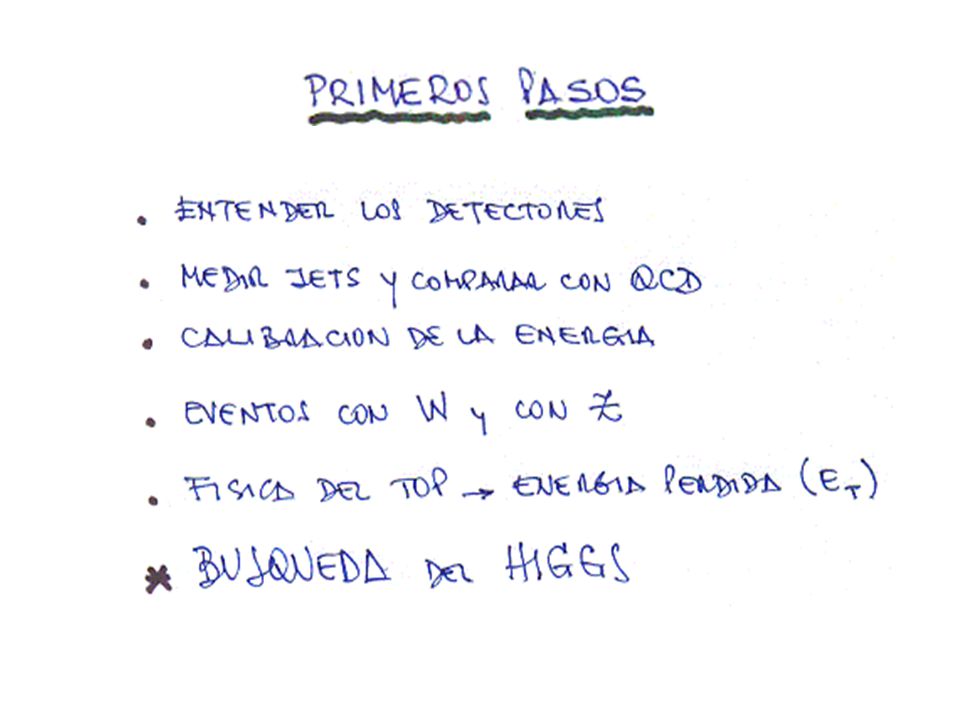 PRIMEROS PASOS
• ENTENDER LOS DETECTORES
• MEDIR JETS Y COMPARAR CON QCD
• CALIBRACION DE LA ENERGIA
• EVENTOS CON W y CON Z
• FISICA DEL TOP → ENERGIA PERDIDA (E_T)
* BUSQUEDA DEL HIGGS